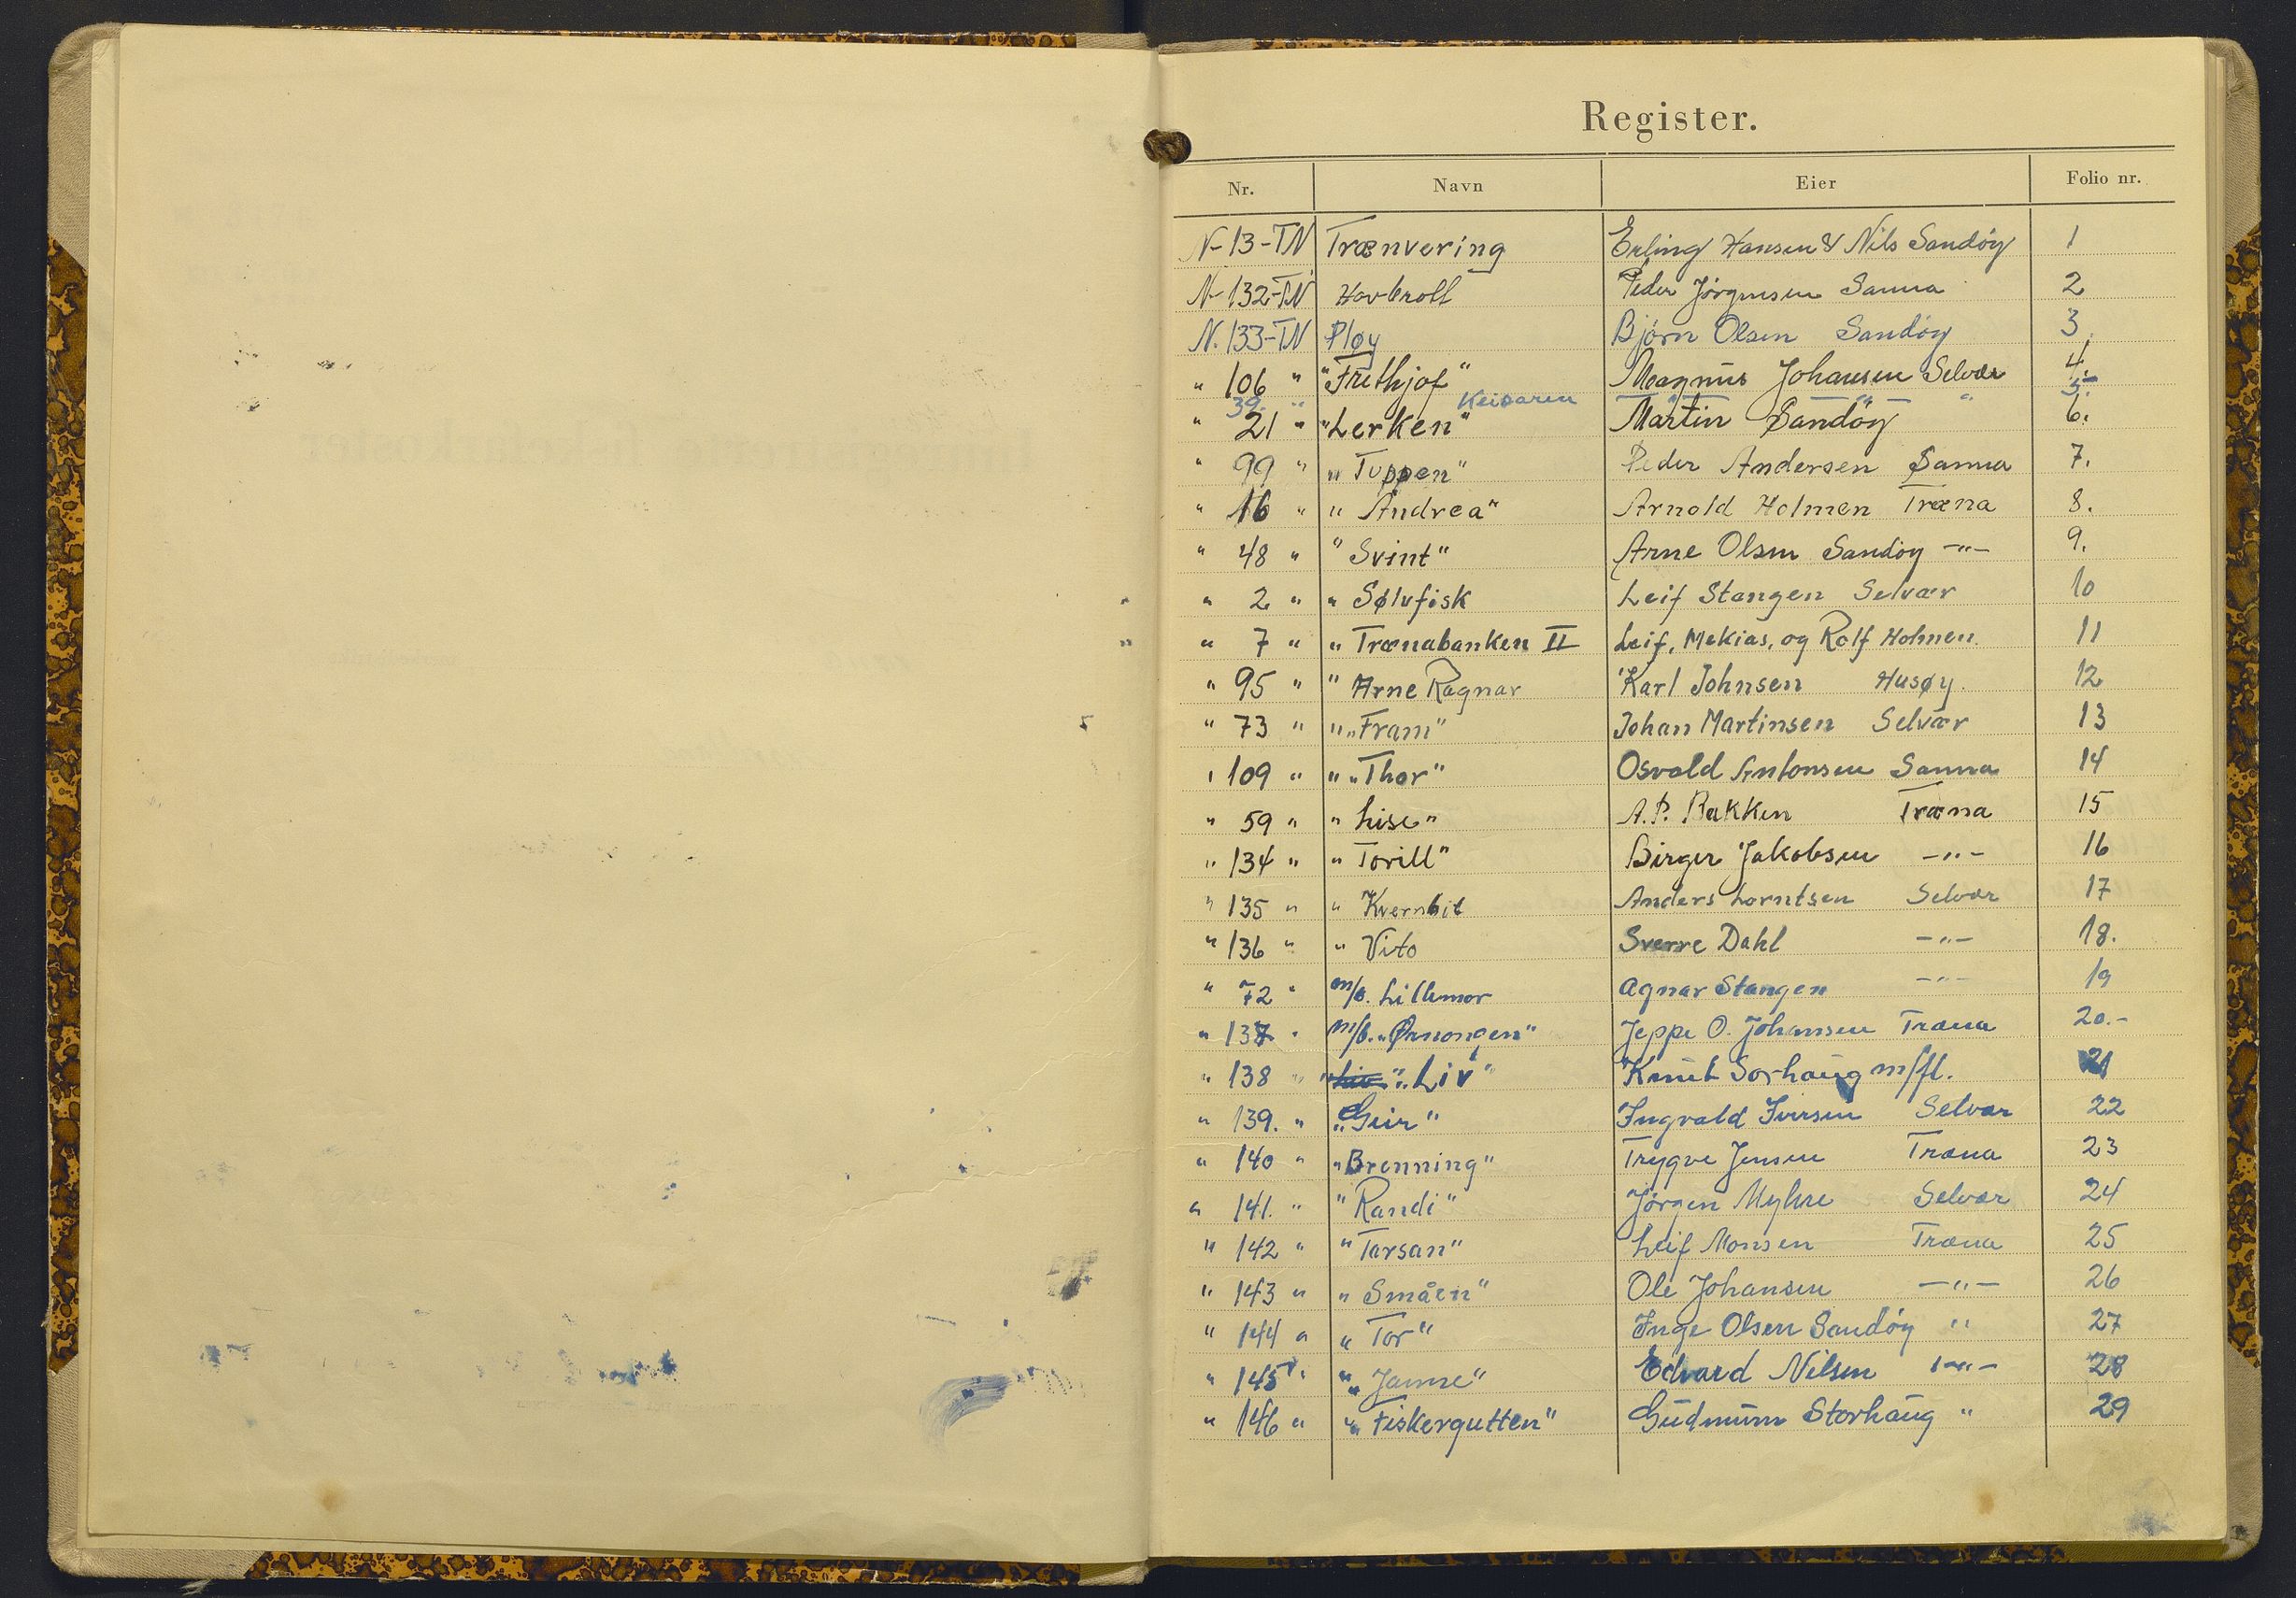 Register.
Nr. Navn Eier Folio nr.
N-13-TN Trænvering Erling Hansen & Nils Sandöy 1
N-132-TN Havtroll Peder Jörgensen Sanna 2
N.133-TN Pløy Björn Olsen Sandöy 3
" 106 " "Frithjof" Magnus Johansen Selvær 4.
" 39 " Keisaren " " " 5.
" 21 " "Lerken" Martin Sandöy 6.
" 99 " "Toppen" Peder Andersen Sanna 7.
" 16 " "Andrea" Arnold Holmen Træna 8.
" 48 " "Svint" Arne Olsen Sandöy -"- 9.
" 2 " " Sølvfisk Leif Stangen Selvær 10
" 7 " " Trænabanken II Leif, Mekias, og Rolf Holmen. 11
" 95 " " Arne Ragnar Karl Johnsen Husøy. 12
" 73 " " "Fram" Johan Martinsen Selvær 13
" 109 " " "Thor" Osvald Antonsen Sanna 14
" 59 " "Lise" A.P. Bakken Træna 15
" 134 " "Torill" Birger Jakobsen -"- 16
" 135 " " Kvernbit Anders Lorntsen Selvær 17
" 136 " " Vito Sverre Dahl -"- 18.
" 72 " m/b. Lillemor Agnar Stangen -"- 19
" 137 " m/b. "Ørnongen" Jeppe O. Johansen Træna 20.-
" 138 " "Liv" "Liv" Knut Sorhaug m/fl. 21
" 139. " "Geir" Ingvald Iversen Selvær 22
" 140 " "Brenning" Trygve Jensen Træna 23
" 141. " "Randi" Jörgen Myhre Selvær 24
" 142 " "Tarsan" Leif Monsen Træna 25
" 143 " "Småen" Ole Johansen -"- 26
" 144 " "Tor" Inge Olsen Sandöy " 27
" 145 " " "Janne" Edvard Nilsen -"- 28
" 146 " " "Fiskergutten" Gudmunn Storhaug " 29